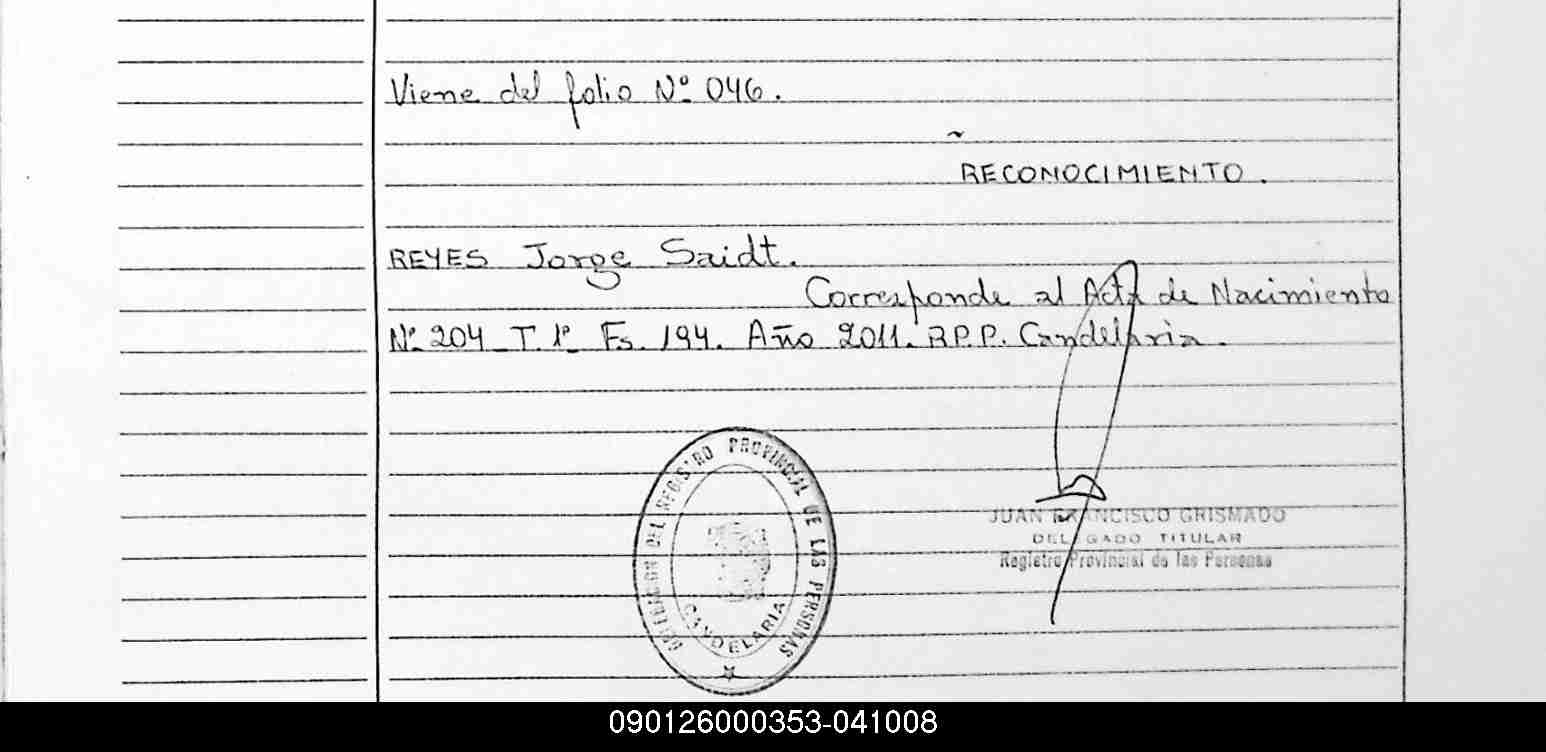 Viene del folio Nº 046.
RECONOCIMIENTO.
REYES Jorge Saidt.
Corresponde al Acta de Nacimiento
Nº 204 T. 1º Fs. 194. Año 2011. R.P.P. Candelaria.
DELEGACION DEL REGISTRO PROVINCIAL DE LAS PERSONAS
CANDELARIA
JUAN FRANCISCO GRISMADO
DELEGADO TITULAR
Registro Provincial de las Personas
090126000353-041008